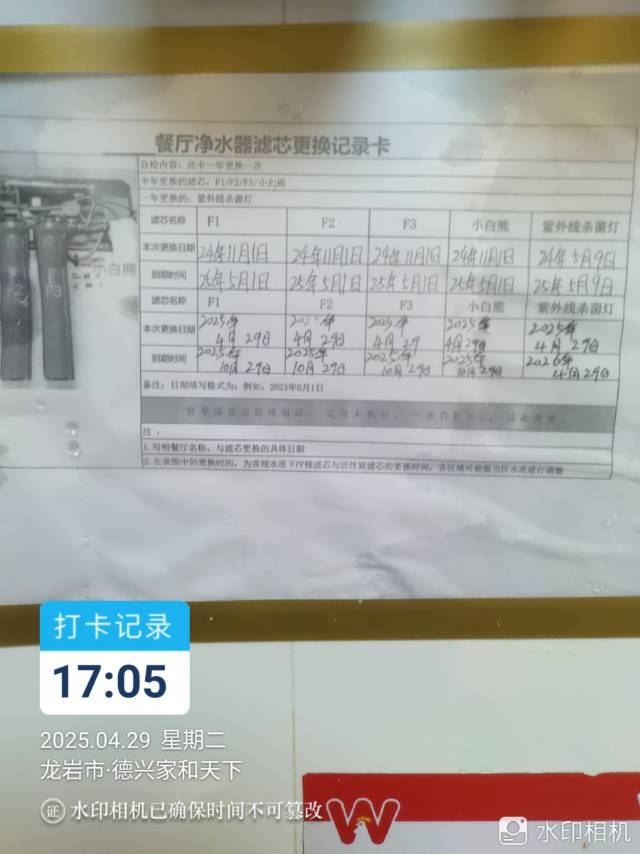 餐厅净水器滤芯更换记录卡
自检内容：此卡一年更换一次
半年更换的滤芯：F1/F2/F3/小白熊
一年更换的：紫外线杀菌灯
滤芯名称 F1 F2 F3 小白熊 紫外线杀菌灯
本次更换日期 24年11月1日 24年11月1日 24年11月1日 24年11月1日 24年5月9日
到期时间 25年5月1日 25年5月1日 25年5月1日 25年5月1日 25年5月9日
滤芯名称 F1 F2 F3 小白熊 紫外线杀菌灯
本次更换日期 2025年4月29日 2025年4月29日 2025年4月29 2025年4月29日 2025年4月29日
到期时间 2025年10月29日 2025年10月29日 2025年10月29日 2025年10月29日 2026年4月29日
备注：日期填写格式为：例如：2023年5月1日
注：
1.写明餐厅名称、与滤芯更换的具体日期
2.左表图中的更换时间，为常规水质下PP棉滤芯与活性炭滤芯的更换时间；各区域可根据当区水质进行调整
F2 F3
小白熊
打卡记录
17:05
2025.04.29 星期二
龙岩市·德兴家和天下
证 水印相机已确保时间不可篡改
水印相机